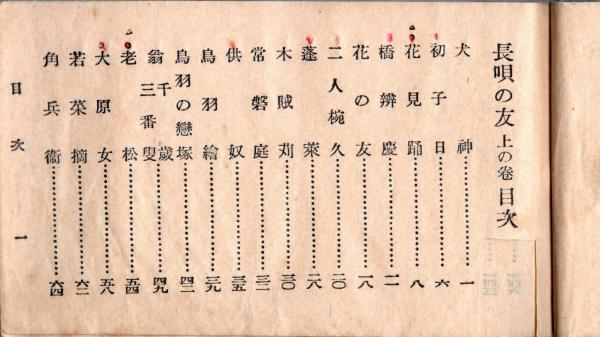 長唄の友 上の卷 目次
犬神……………一
初子日……………六
花見踊……………八
橋辨慶……………一一
花の友……………一八
二人椀久……………二〇
蓬萊……………二八
木賊苅……………三〇
常磐庭……………三二
供奴……………三五
鳥羽繪……………三九
鳥羽の戀塚……………四二
翁千歲三番叟……………四九
老松……………五四
大原女……………五八
若菜摘……………六二
角兵衞……………六四
目次 一